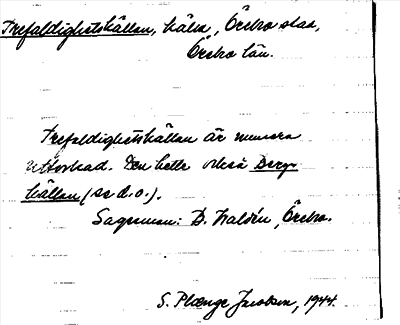 Trefaldighetskällan, källa, Örebro stad,
Örebro län.
Trefaldighetskällan är numera
uttorkad. Den hette också Berg-
källan (se d.o.).
Sagesman: B. Waldén, Örebro.
S. Plænge Jacobson, 1944.